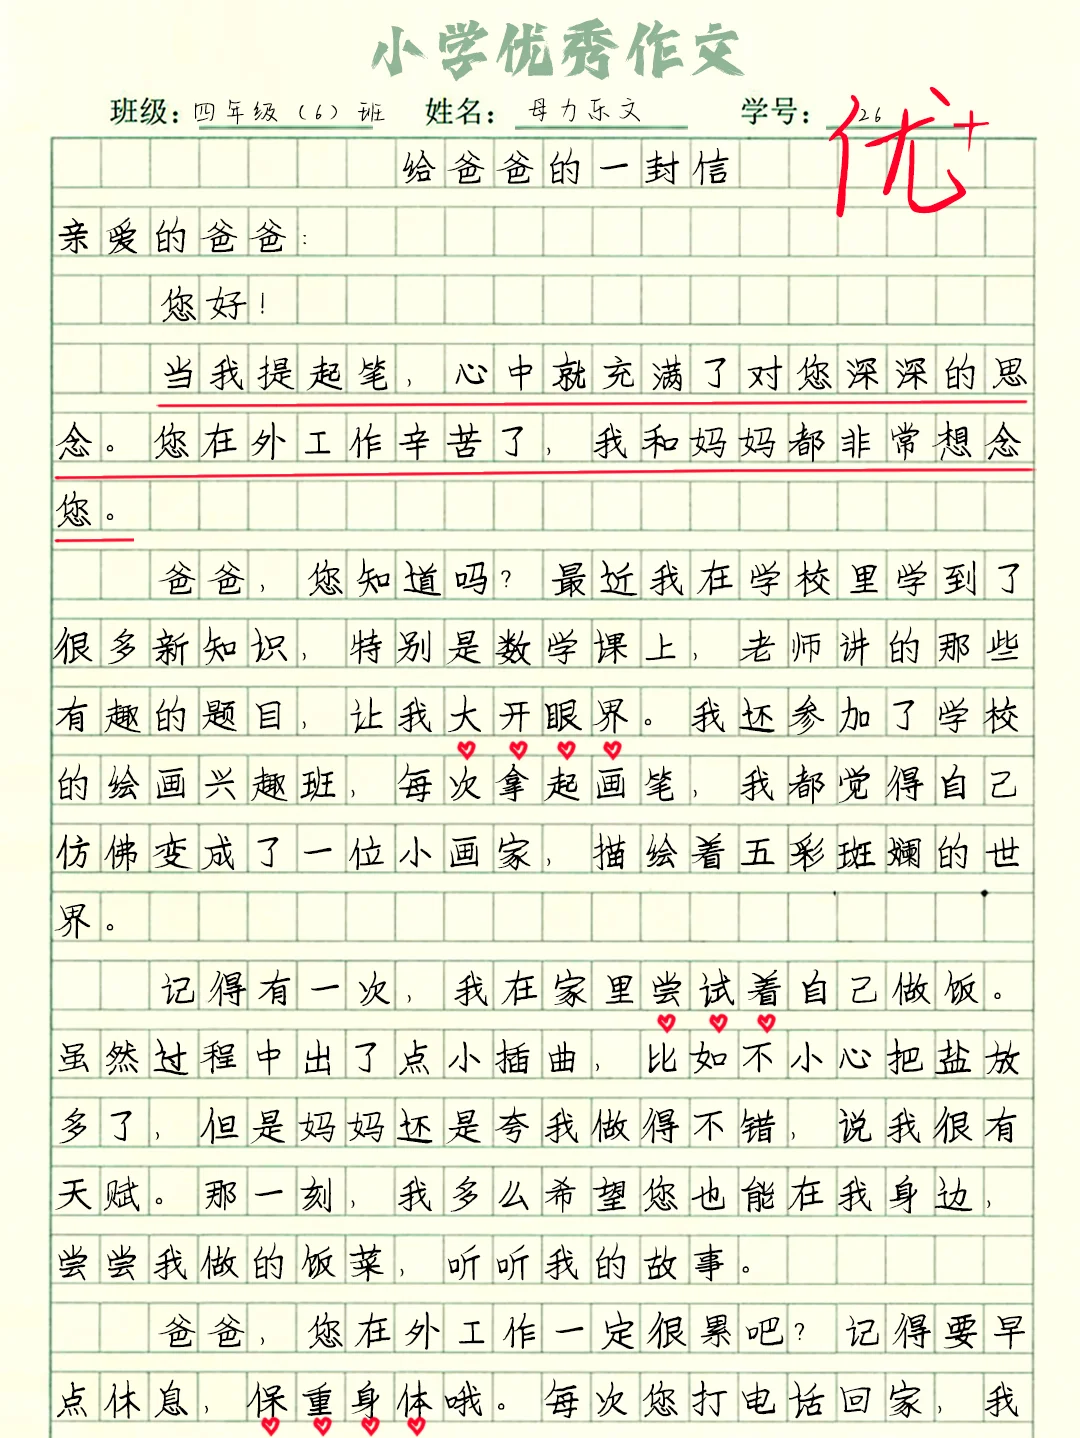 小学优秀作文
班级：四年级（6）班 姓名：母力乐文 学号：26
优+
给爸爸的一封信
亲爱的爸爸：
您好！
当我提起笔，心中就充满了对您深深的思
念。您在外工作辛苦了，我和妈妈都非常想念
您。
爸爸，您知道吗？最近我在学校里学到了
很多新知识，特别是数学课上，老师讲的那些
有趣的题目，让我大开眼界。我还参加了学校
的绘画兴趣班，每次拿起画笔，我都觉得自己
仿佛变成了一位小画家，描绘着五彩斑斓的世
界。
记得有一次，我在家里尝试着自己做饭。
虽然过程中出了点小插曲，比如不小心把盐放
多了，但是妈妈还是夸我做得不错，说我很有
天赋。那一刻，我多么希望您也能在我身边，
尝尝我做的饭菜，听听我的故事。
爸爸，您在外工作一定很累吧？记得要早
点休息，保重身体哦。每次您打电话回家，我